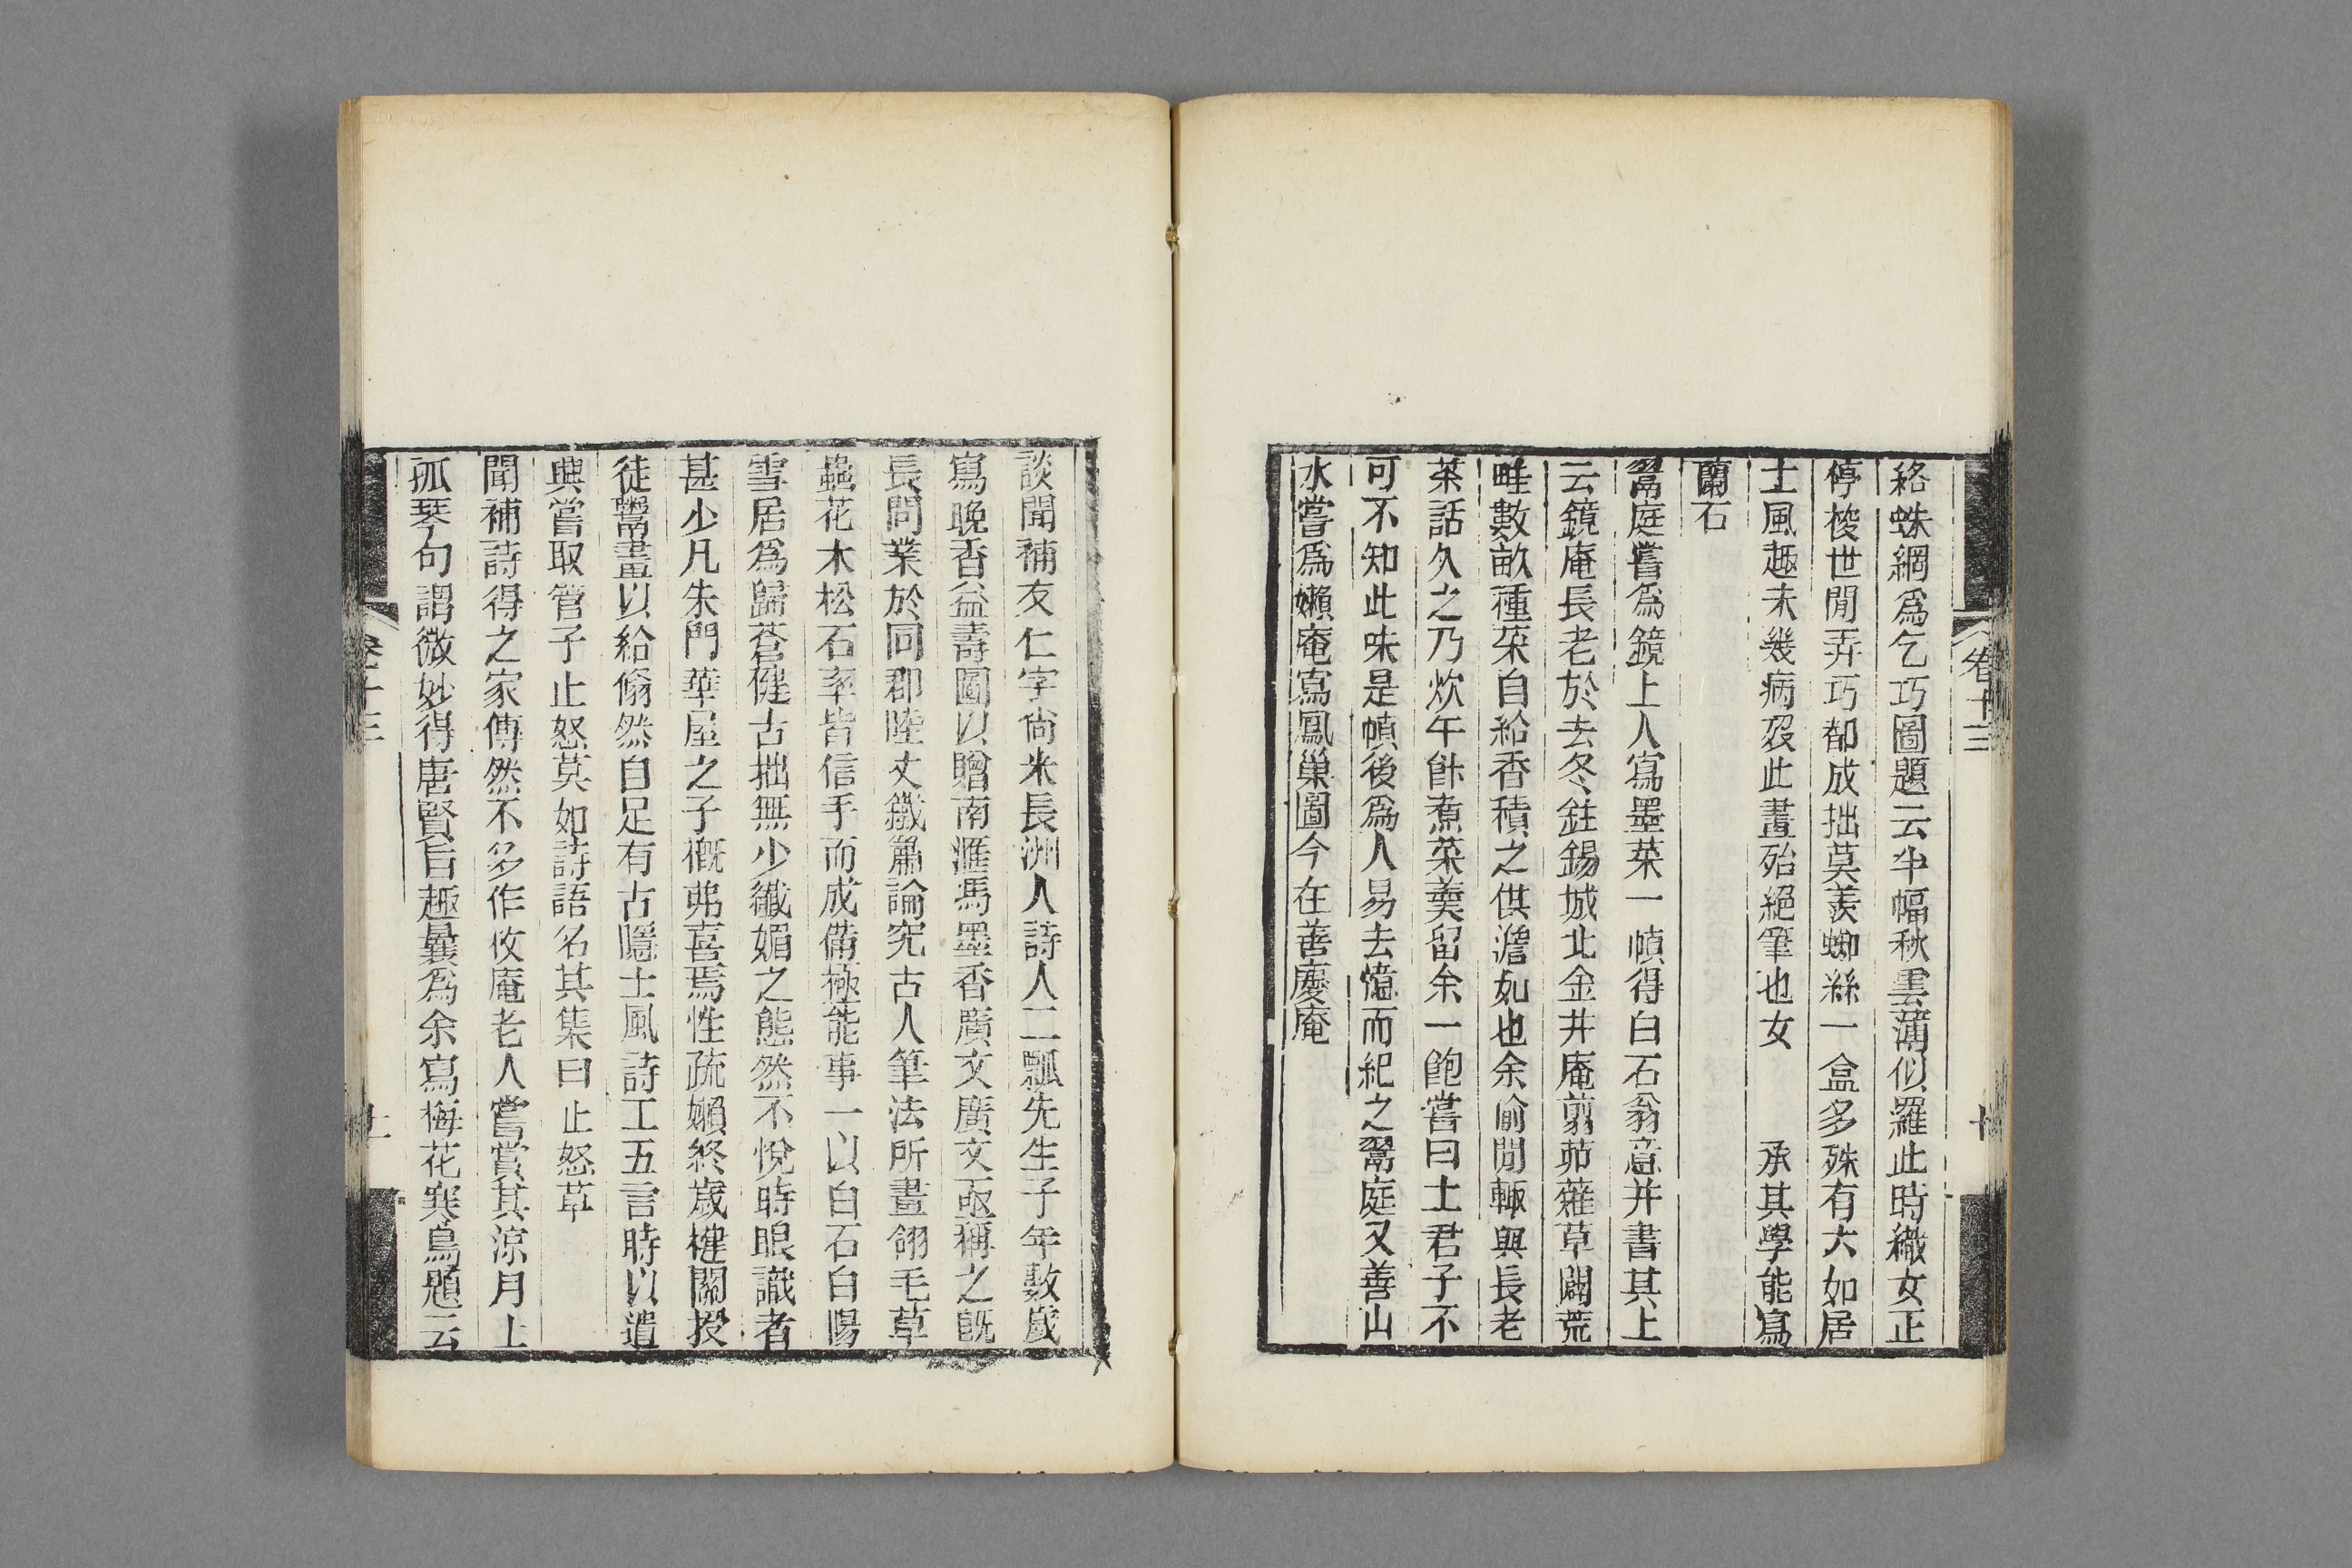 絡蛛網為乞巧圖題云半幅秋雲薄似羅此時織女正
停梭世閒弄巧都成拙莫羨蜘絲一盒多殊有大如居
士風趣未幾病歿此畫殆絕筆也女　承其學能寫
蘭石
鬻庭嘗為鏡上人寫墨菜一幀得白石翁意并書其上
云鏡庵長老於去冬銼錫城北金井庵剪茆薙草闢荒
畦數畝種菜自給香積之供澹如也余偷閒輒與長老
茶話久之乃炊午飰煮菜羹留余一飽嘗曰士君子不
可不知此味是幀後為人易去憶而紀之鬻庭又善山
水嘗為嬾庵寫鳳巢圖今在善慶庵
卷十三
十
談聞補友仁字尙米長洲人詩人二瓢先生子年數歲
寫晚香益壽圖以贈南滙馮墨香廣文廣文亟稱之旣
長問業於同郡陸文鐵簫論究古人筆法所畫翎毛草
蟲花木松石率皆信手而成備極能事一以白石白陽
雪居為歸蒼健古拙無少纖媚之態然不悅時眼識者
甚少凡朱門華屋之子概弗喜焉性疏嬾終歲楗關授
徒鬻畫以給翛然自足有古隱士風詩工五言時以遣
興嘗取管子止怒莫如詩語名其集曰止怒草
聞補詩得之家傳然不多作攸庵老人嘗賞其涼月上
孤琴句謂微妙得唐賢旨趣曩為余寫梅花寒鳥題云
卷十三
十一